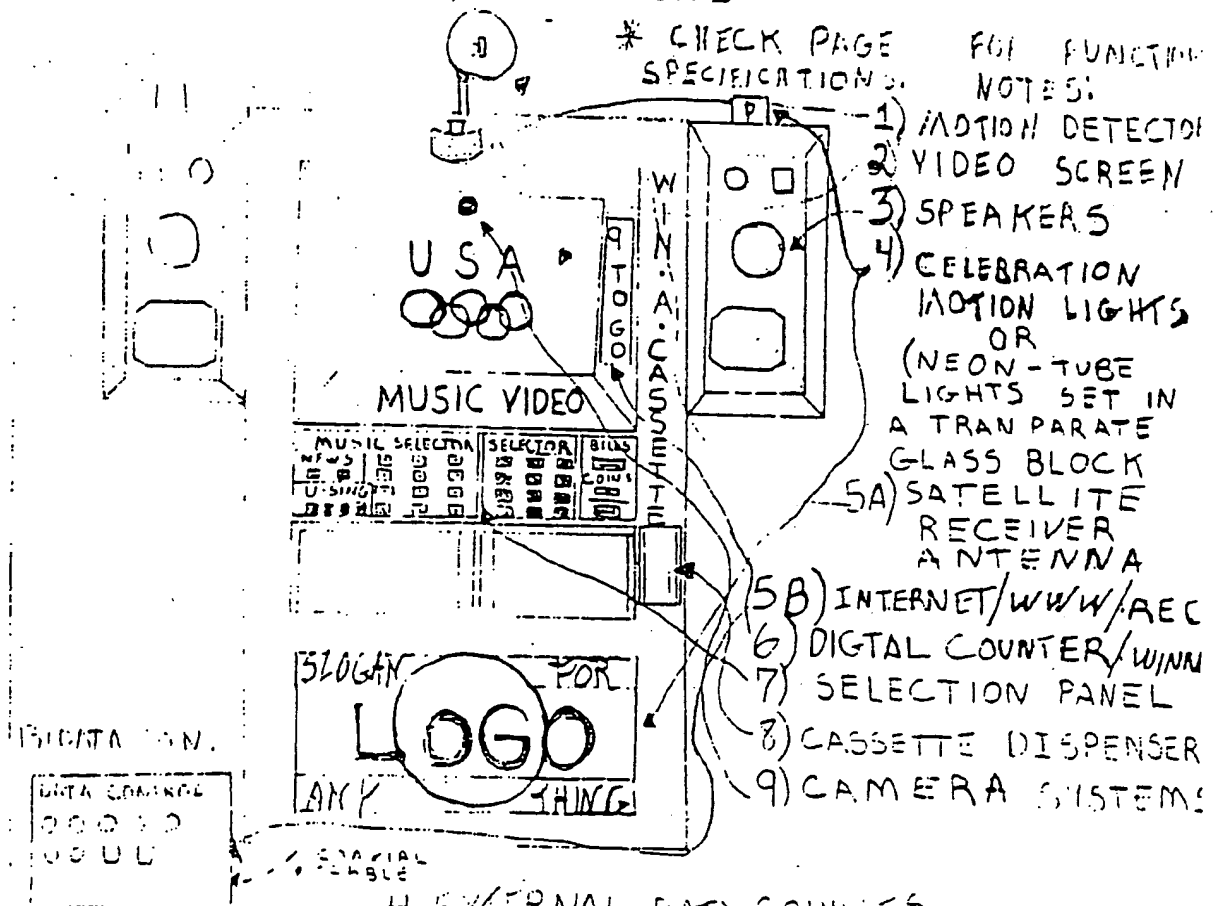 * CHECK PAGE FOR FUNCTION
SPECIFICATIONS. NOTES:
1) MOTION DETECTOR
2) VIDEO SCREEN
3) SPEAKERS
4) CELEBRATION
MOTION LIGHTS
OR
(NEON-TUBE
LIGHTS SET IN
A TRANPARATE
GLASS BLOCK
5A) SATELLITE
RECEIVER
ANTENNA
5B) INTERNET/WWW/REC
6) DIGTAL COUNTER/WINN
7) SELECTION PANEL
8) CASSETTE DISPENSER
9) CAMERA SYSTEMS
P
WIN.A.CASSETTE
USA
9 TO GO
MUSIC VIDEO
MUSIC SELECTOR SELECTOR BILLS
NEWS COINS
U-SING
SLOGAN FOR
LOGO
ANY THING
DATA CONTROL
COAXIAL
CABLE
EXTERNAL DATA